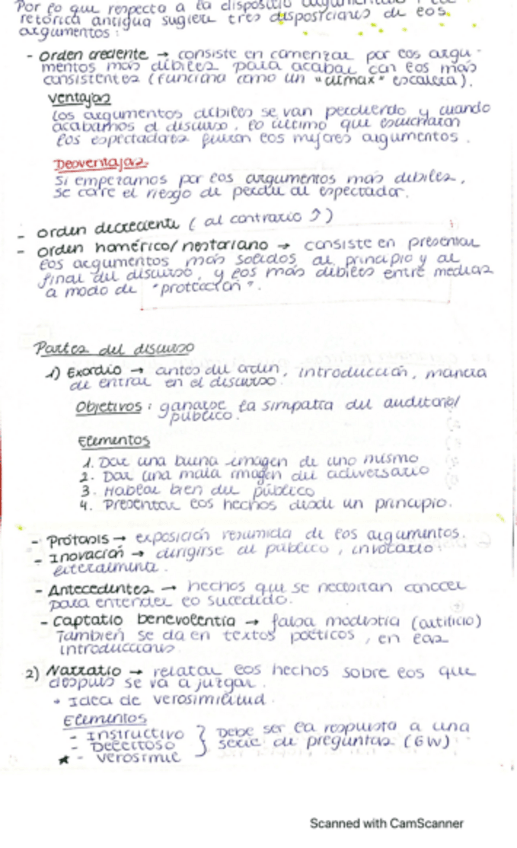 Por lo que respecto a la dispositio argumental, la
retórica antigua sugiere tres disposiciones de los
argumentos:
- orden creciente → consiste en comenzar por los argu-
mentos más débiles para acabar con los más
consistentes (funciona como un "climax" escalera).
Ventajas
Los argumentos débiles se van perdiendo y cuando
acabamos el discurso, lo último que escucharon
los espectadores fueron los mejores argumentos.
Desventajas
Si empezamos por los argumentos más débiles,
se corre el riesgo de perder al espectador.
- orden decreciente (al contrario ↑)
- orden homérico/nestoriano → consiste en presentar
los argumentos más sólidos al principio y al
final del discurso, y los más débiles entre medias
a modo de "protección".
Partes del discurso
1) Exordio → antes del orden, introducción, manera
de entrar en el discurso.
Objetivos: ganarse la simpatía del auditorio/
público.
Elementos
1. Dar una buena imagen de uno mismo
2. Dar una mala imagen del adversario
3. Hablar bien del público
4. Presentar los hechos desde un principio.
- Prótasis → exposición resumida de los argumentos.
- Inovación → dirigirse al público, invocarlo
literalmente.
- Antecedentes → hechos que se necesitan conocer
para entender lo sucedido.
- Captatio benevolentia → falsa modestia (artificio)
También se da en textos poéticos, en las
introducciones.
2) Narratio → relatar los hechos sobre los que
después se va a juzgar.
• Idea de verosimilitud.
Elementos
- Instructivo } Debe ser la respuesta a una
- Deleitoso serie de preguntas (6W)
★ - verosímil
Scanned with CamScanner